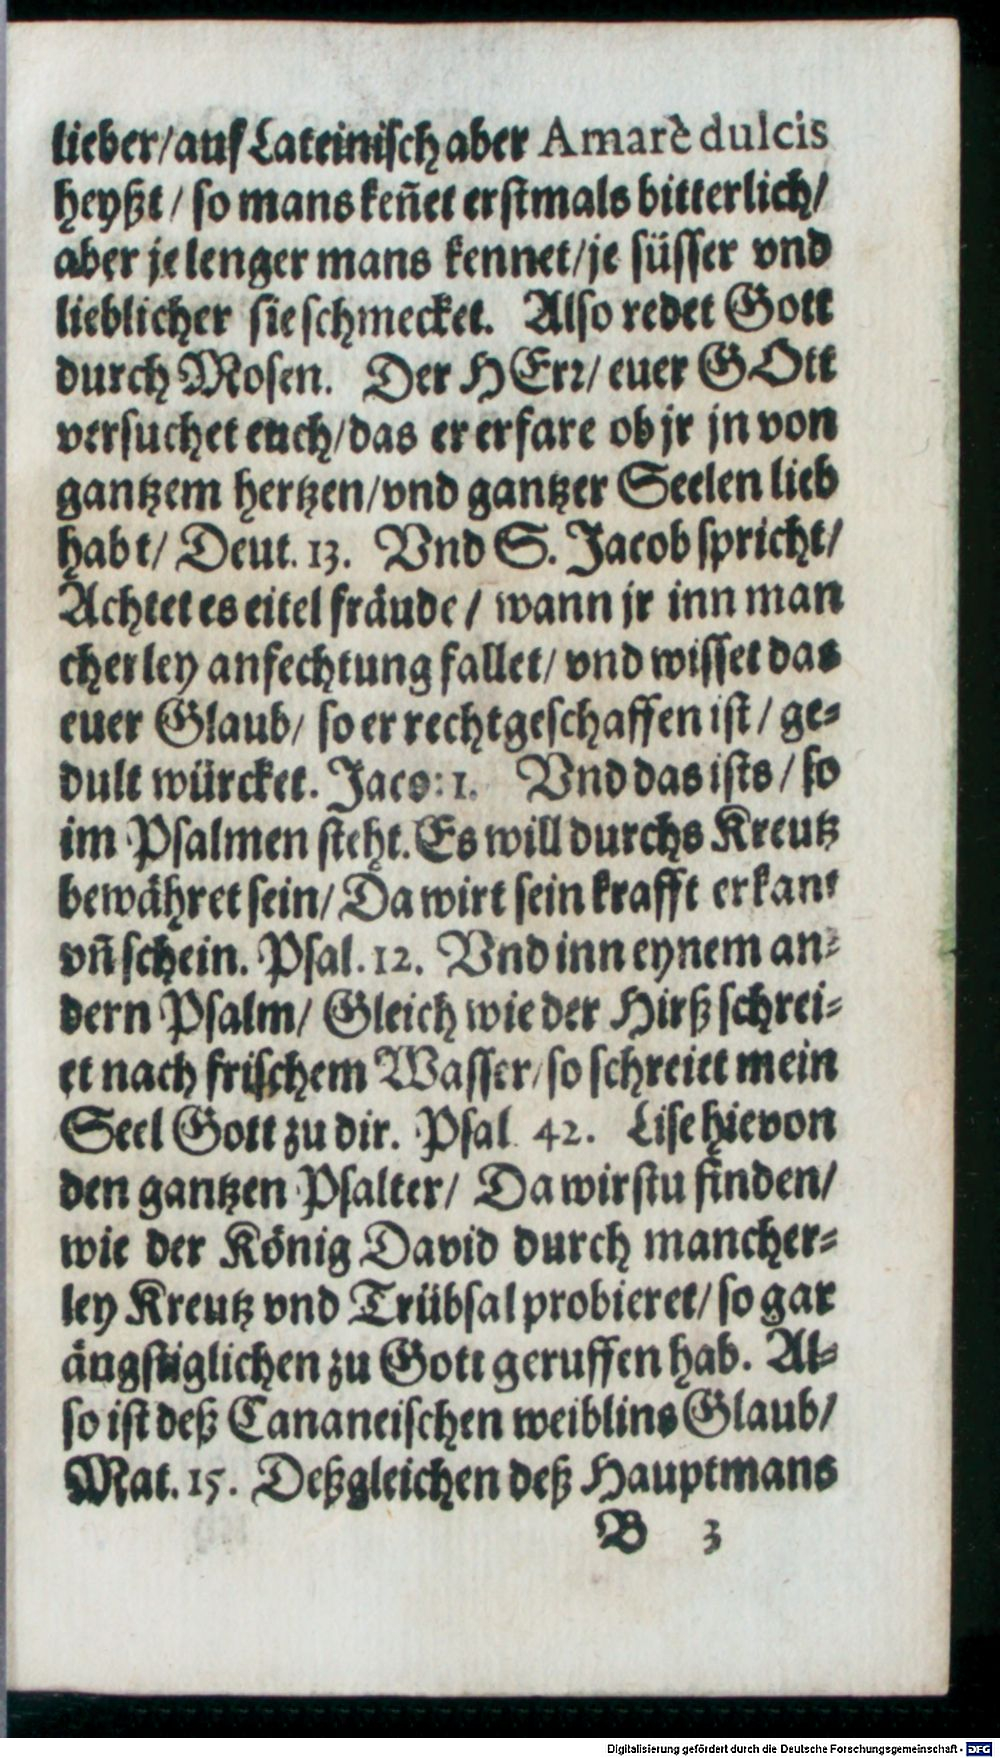 lieber/auf Lateinisch aber Amarè dulcis
heyßt / so mans keñet erstmals bitterlich/
aber je lenger mans kennet/je süsser vnd
lieblicher sie schmecket. Also redet Gott
durch Mosen. Der HErr/ euer GOtt
versuchet euch/das er erfare ob jr jn von
gantzem hertzen/vnd gantzer Seelen lieb
habt/ Deut. 13. Vnd S. Jacob spricht/
Achtet es eitel fräude / wann jr inn man
cherley anfechtung fallet/ vnd wisset das
euer Glaub/ so er rechtgeschaffen ist / ge-
dult würcket. Jaco: 1. Vnd das ists / so
im Psalmen steht. Es will durchs Kreutz
bewähret sein/ Da wirt sein krafft erkant
vñ schein. Psal. 12. Vnd inn eynem an-
dern Psalm/ Gleich wie der Hirß schrei-
et nach frischem Wasser/so schreiet mein
Seel Gott zu dir. Psal. 42. Lise hievon
den gantzen Psalter/ Da wirstu finden/
wie der König David durch mancher-
ley Kreutz vnd Trübsal probieret/ so gar
ängstiglichen zu Gott geruffen hab. Al-
so ist deß Cananeischen weiblins Glaub/
Mat. 15. Deßgleichen deß Hauptmans
B 3
Digitalisierung gefördert durch die Deutsche Forschungsgemeinschaft - DFG